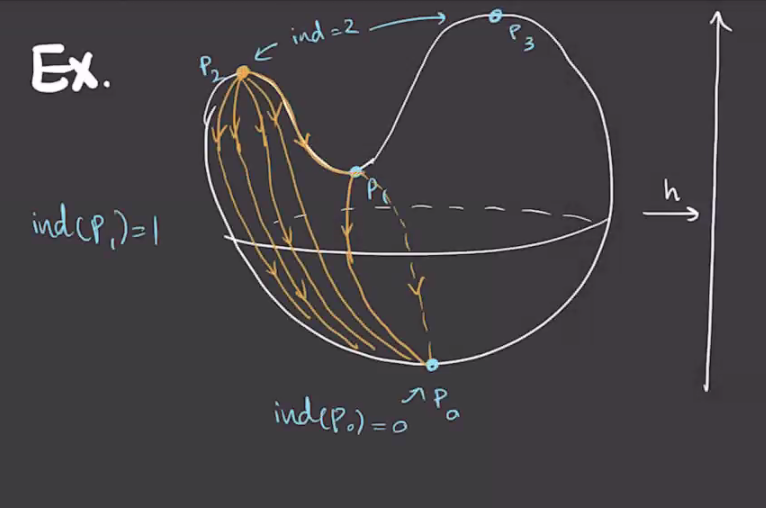 Ex.
P₂
ind=2
P₃
P₁
h
ind(P₁)=1
P₀
ind(P₀)=0